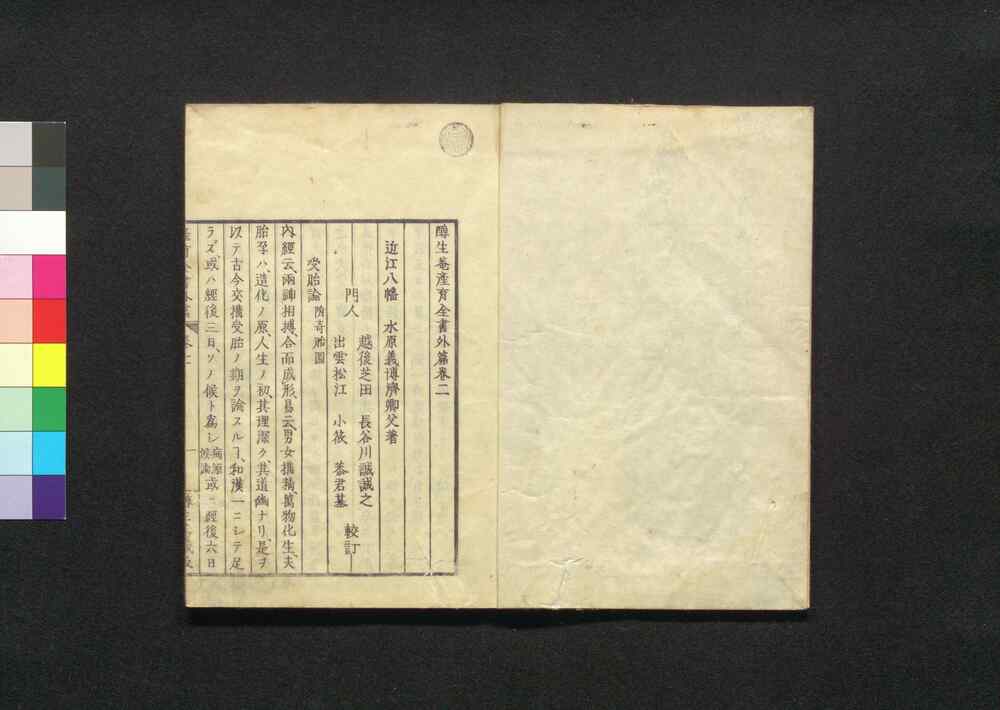 醇生菴産育全書外篇巻二
近江八幡 水原義博濟卿父著
門人
越後芝田 長谷川誠誠之
出雲松江 小筱 恭君基
較訂
受胎論 附奇胎圖
内經云、兩神相搏、合而成形、易云、男女搆精、萬物化生、夫
胎孕ハ、造化ノ原、人生ノ初、其理深ク、其道幽ナリ、是ヲ
以テ古今交搆受胎ノ期ヲ論スルヿ、和漢一ニシテ足
ラズ、或ハ經後三日、ソノ候ト爲シ 病源候論 或ハ經後六日